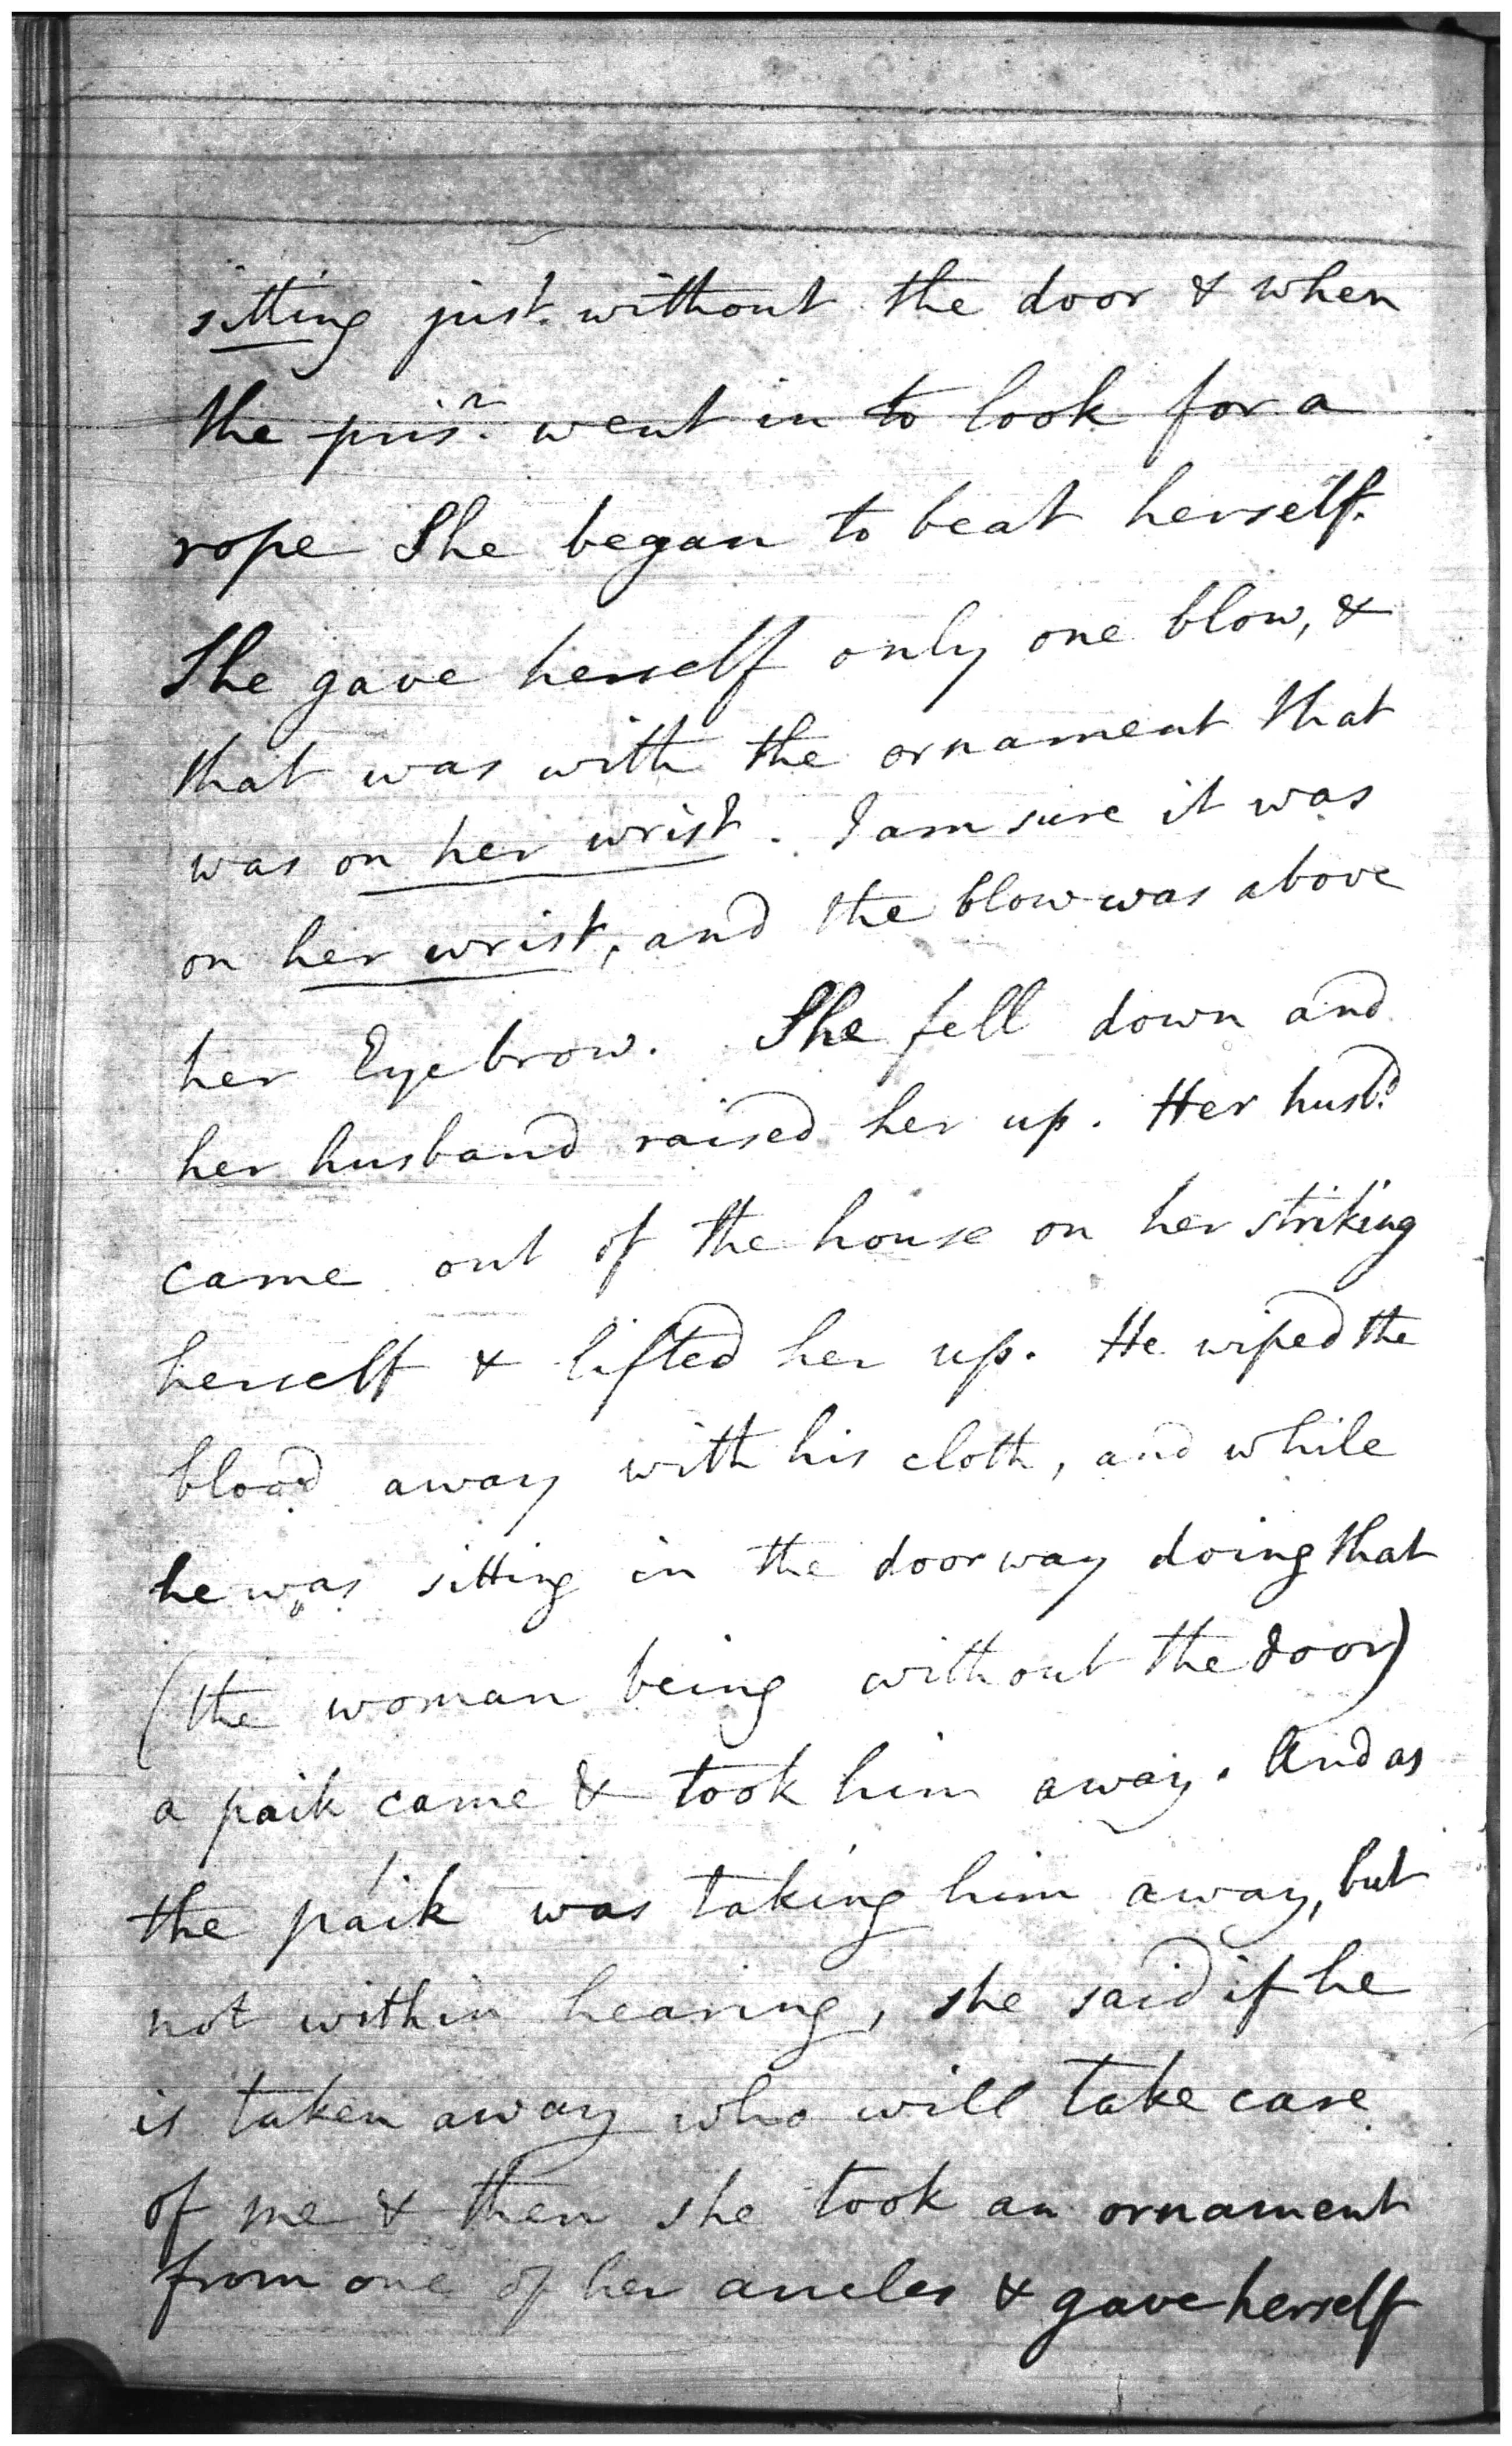 sitting just without the door & when
the prisr. went in to look for a
rope She began to beat herself.
She gave herself only one blow, &
that was with the ornament that
was on her wrist. I am sure it was
on her wrist, and the blow was above
her Eyebrow. She fell down and
her husband raised her up. Her husbd.
came out of the house on her striking
herself & lifted her up. He wiped the
blood away with his cloth, and while
he was sitting in the doorway doing that
(the woman being without the door)
a paik came & took him away. And as
the paik was taking him away, but
not within hearing, she said if he
is taken away who will take care
of me & then she took an ornament
from one of her ancles & gave herself